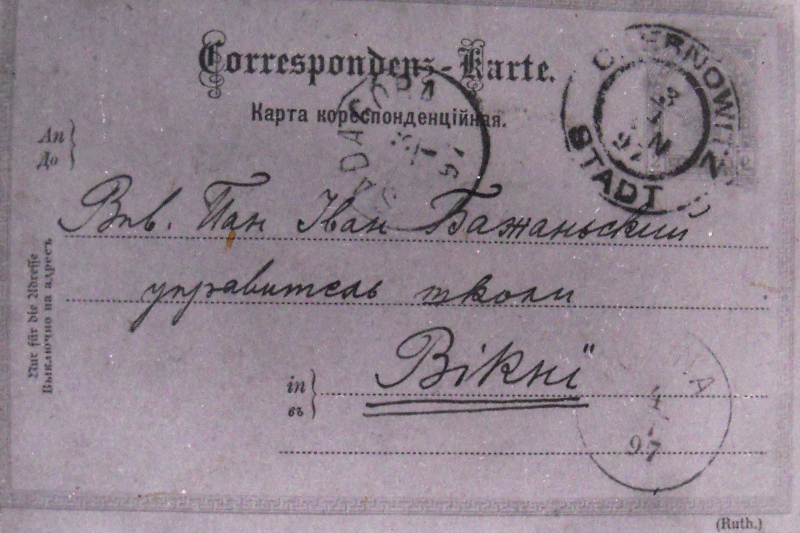 Correspondenz-Karte.
Карта кореспонденційная.
An
До
CZERNOWITZ
STADT
97
SADAGORA
97
Впв. Пан Іван Бажаньский
управитель школи
Вікнї
in
въ
4
97
Nur für die Adresse
Выключно на адресъ
(Ruth.)